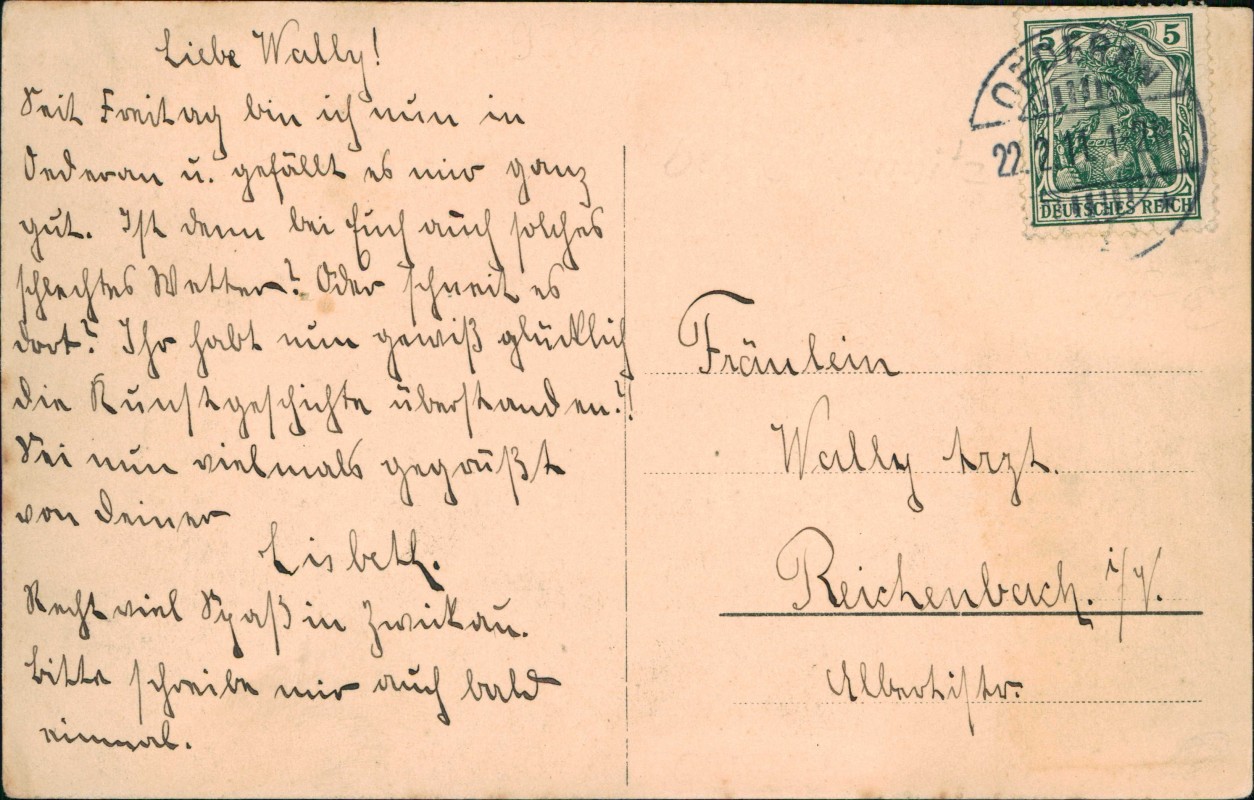 Liebe Wally!
Seit Freitag bin ich nun in
Oederan u. gefällt es mir ganz
gut. Ist denn bei Euch auch solches
schlechtes Wetter? Oder schneit es
dort? Ihr habt nun gewiß glücklich
die Kunstgeschichte überstanden?!
Sei nun vielmals gegrüßt
von Deiner
Lisbeth.
Recht viel Spaß in Zwickau.
Bitte schreibe mir auch bald
einmal.
5 5
OEDERAN
22.2.
DEUTSCHES REICH
Fräulein
Wally Arzt.
Reichenbach. i/V.
Albertistr.